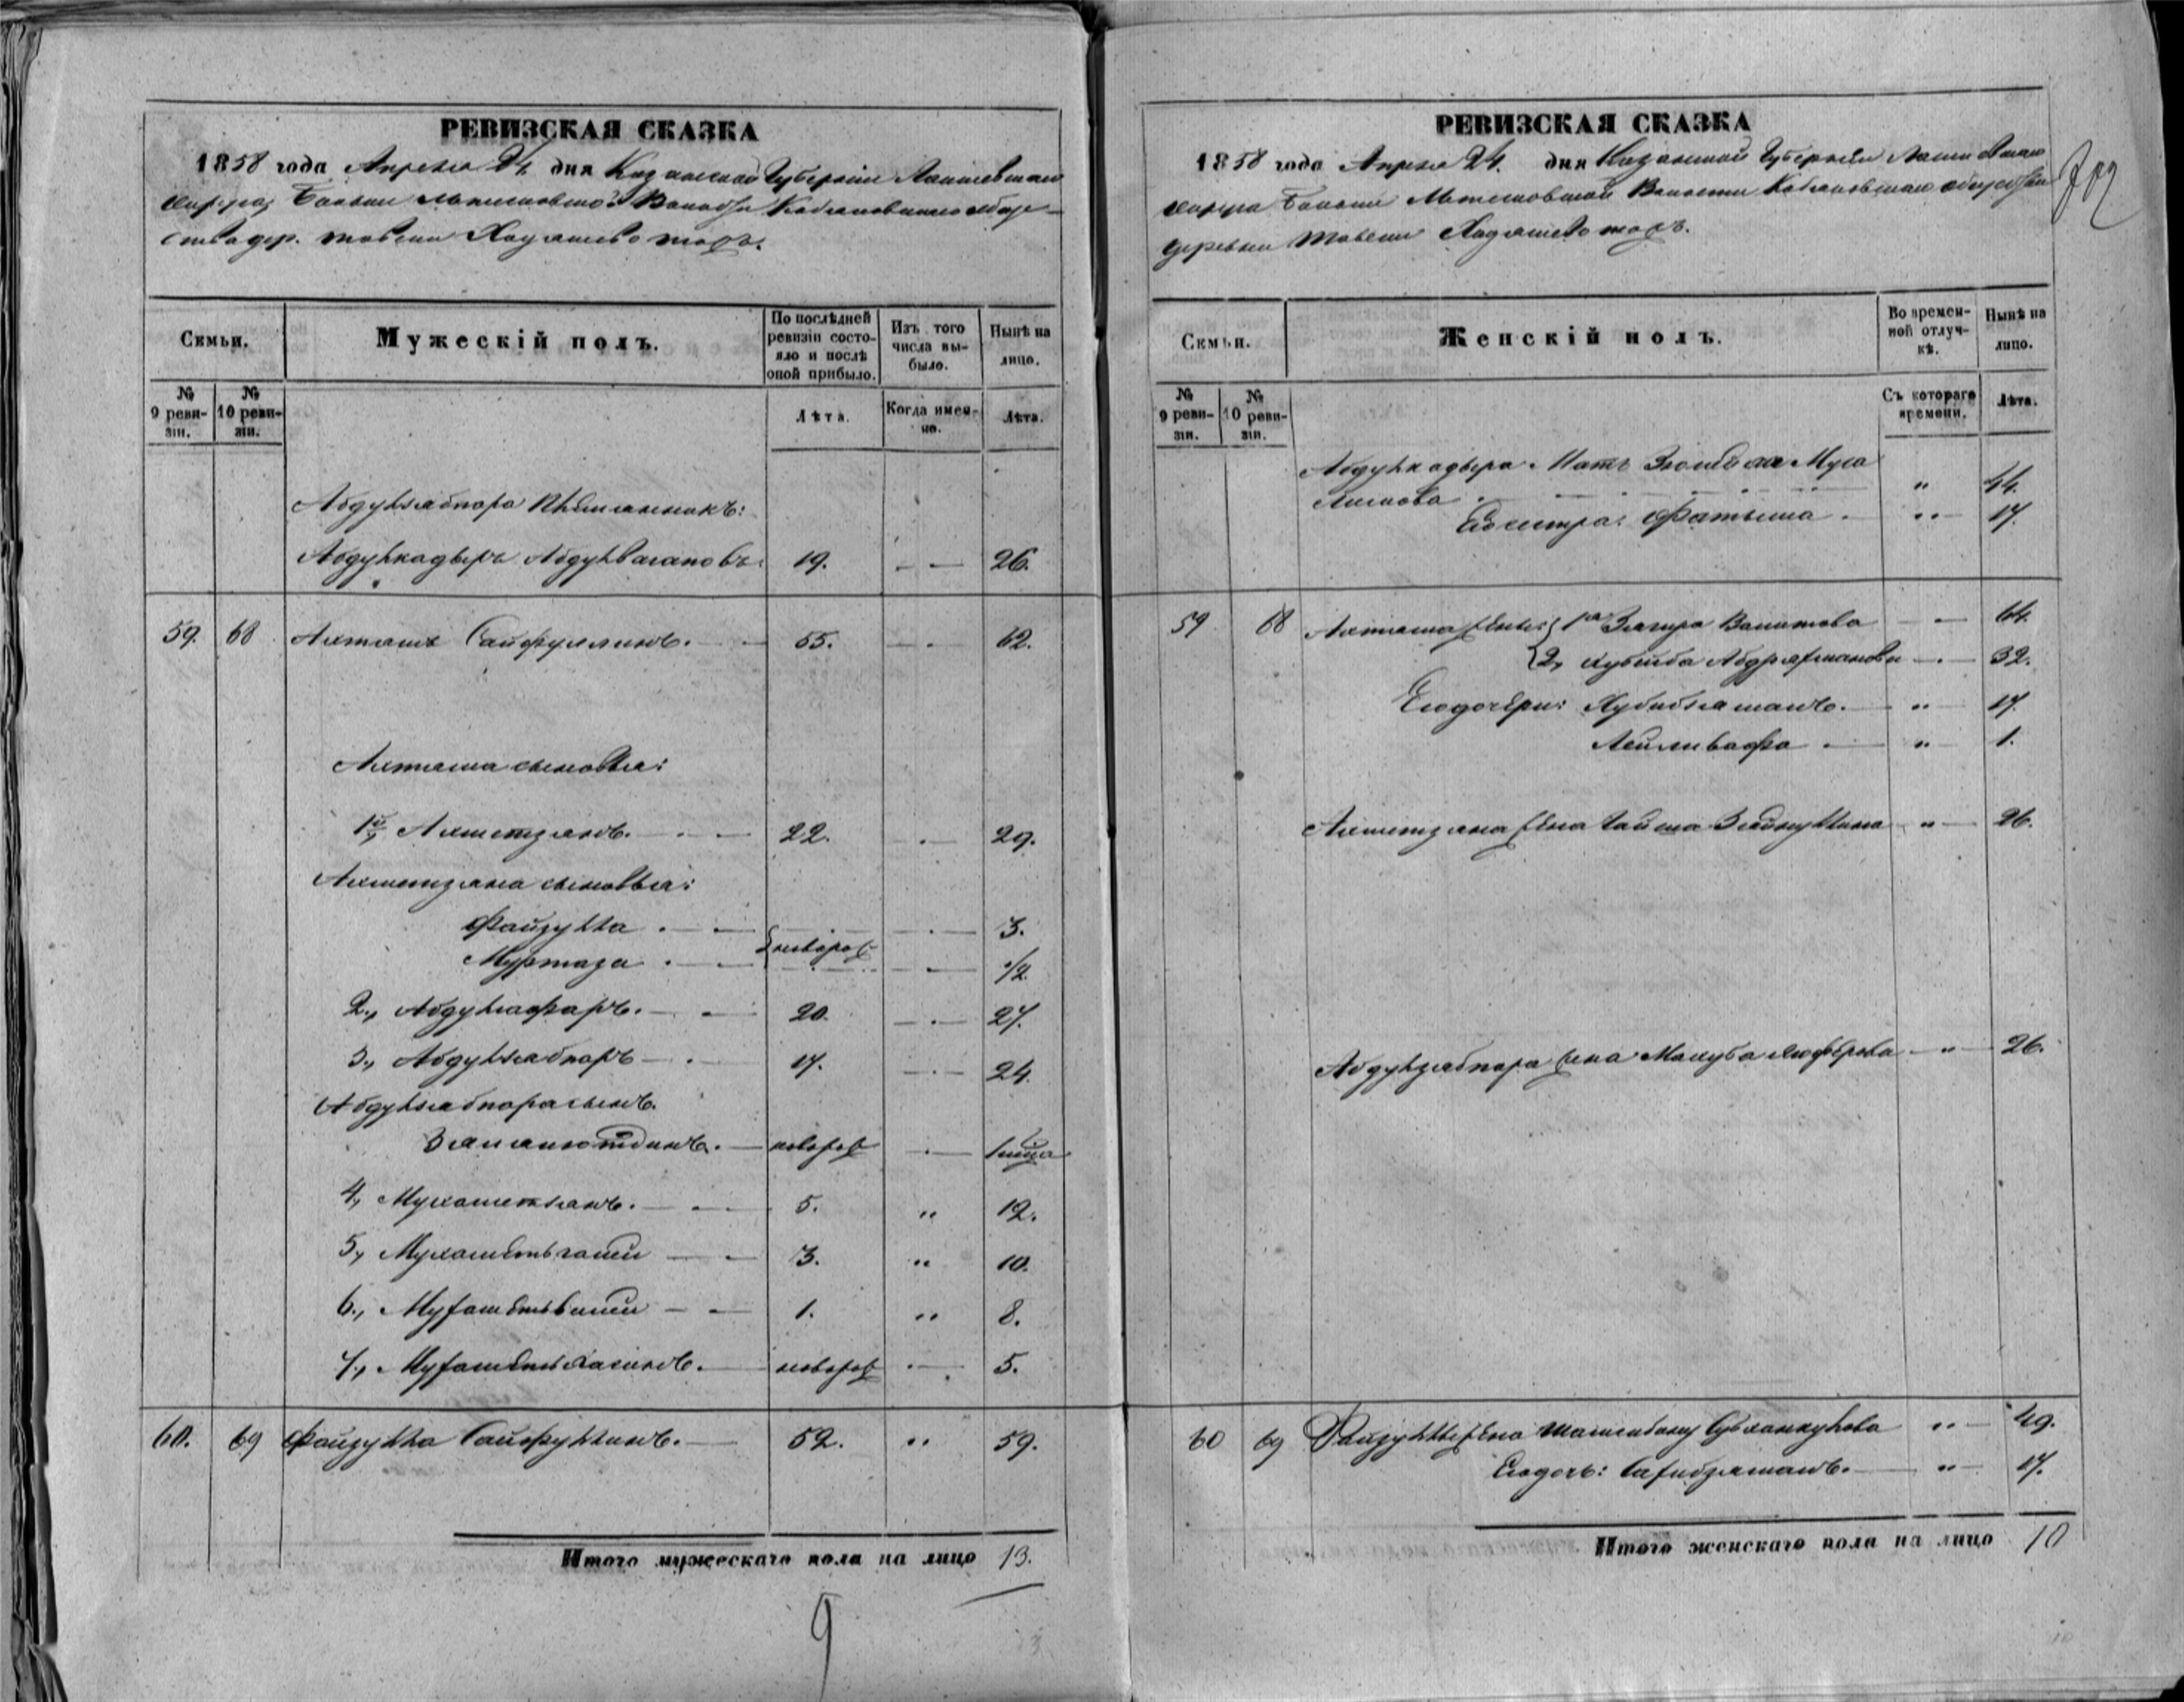 РЕВИЗСКАЯ СКАЗКА
1858 года Апреля 24 дня Казанской Губерніи Лаишевскаго
округа, Больше Метесковской Волости Кобяковскаго обще-
ства дер. Тявели Хадяшево тожъ.
Семьи.
Мужескій полъ.
По послѣдней ревизіи состояло и послѣ оной прибыло.
Изъ того числа выбыло.
Нынѣ на лицо.
№ 9 ревизіи.
№ 10 ревизіи.
Лѣта.
Когда именно.
Лѣта.
Абдулзяббара племянникъ:
Абдулкадыръ Абдулвагаповъ. 19. 26.
59. 68 Ахтямъ Сайфуллинъ. 55. 62.
Ахтяма сыновья:
1й, Ахметзянъ. 22. 29.
Ахметзяна сыновья:
Файзулла 3.
новорож
Муртаза 1/2
2., Абдулгафаръ. 20. 27.
3., Абдулзяббаръ 17. 24.
Абдулзяббара сынъ.
Замалютдинъ. новорож
4, Мухаметзянъ. 5. " 12.
5, Мухаметьгалей 3. " 10.
6., Мухаметьвалей 1. " 8.
7., Мухаметь новорож 5.
60. 69 Файзулла Сайфуллинъ. 52. " 59.
Итого мужескаго пола на лицо 13.
9
РЕВИЗСКАЯ СКАЗКА
1858 года Апреля 24. дня Казанской Губерніи Лаишевскаго
округа Больше Метесковской Волости Кобяковскаго общества
деревни Тявели Хадяшево тожъ.
Семьи.
Женскій полъ.
Во временной отлучкѣ.
Нынѣ на лицо.
№ 9 ревизіи.
№ 10 ревизіи.
Съ котораго времени.
Лѣта.
Абдулкадыра Мать Муса
" 44.
Сестра: Фатыма " 17.
59 68 Ахтяма жены: 1я Загира Вагитова 64.
2, Хубейба Абдряхманова 32.
Его дочери: Хубибзямалъ. " 17.
Лейливафа " 1.
Ахметзяна жена Гайша Зейнуллина " 26.
Абдулзяббара жена Махуба " 26.
60 69 Файзуллы жена Шамсибану " 49.
Его дочь: Сахибзямалъ. " 17.
Итого женскаго пола на лицо 10